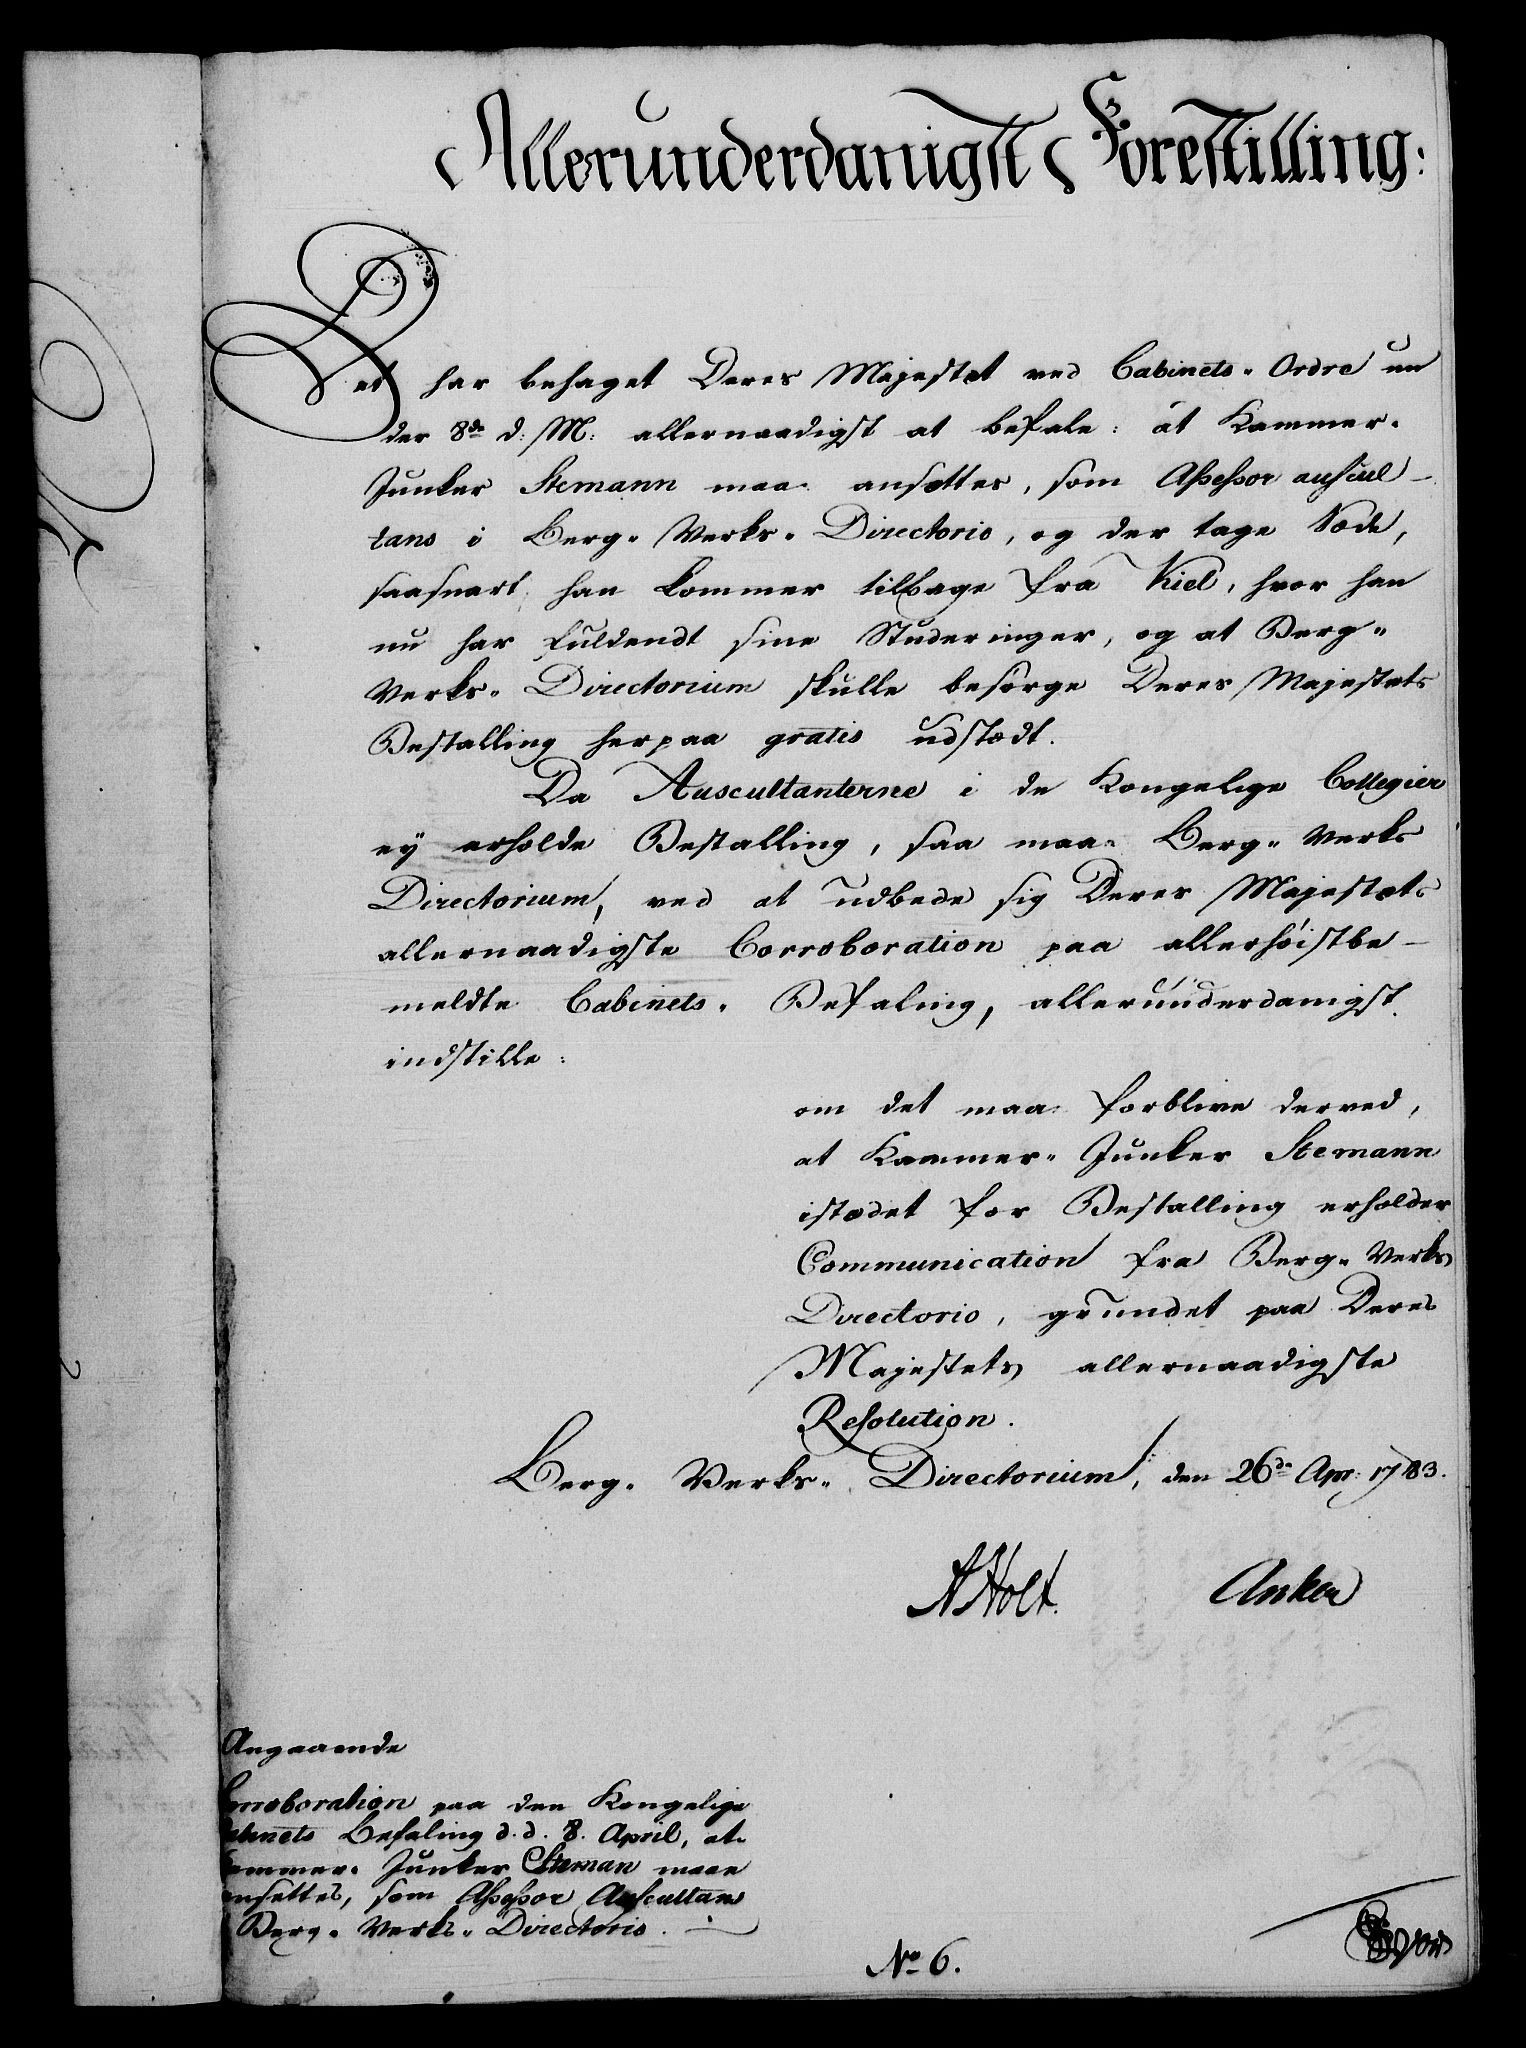 Allerunderdanigst Forestilling:
Det har behaget Deres Majestæt ved Cabinets-Ordre un
der 8de d: M: allernaadigst at befale: at Kammer-
Junker Stemann maa ansættes, som Assessor auscul-
tans i Berg-Verks-Directorio, og der tage Sæde,
saasnart han kommer tilbage fra Kiel, hvor han
nu har fuldendt sine Studeringer, og at Berg-
Verks-Directorium skulle besørge Deres Majestæts
Bestalling herpaa gratis udstædt.
Da Auscultanterne i de Kongelige Collegier
ey erholde Bestalling, saa maa Berg-Verks
Directorium, ved at udbede sig Deres Majestæts
allernaadigste Corroboration paa allerhøistbe-
meldte Cabinets-Befaling, allerunderdanigst
indstille:
om det maa forblive derved,
at Kammer-Junker Stemann
istædet for Bestalling erholder
Communication fra Berg-Verks
Directorio, grundet paa Deres
Majestets allernaadigste
Resolution.
Berg-Verks-Directorium, den 26de Apr: 1783.
AHolt. Anker
Angaaende
Corroboration paa den Kongelige
Cabinets Befaling d.d. 8. April, at
Kammer-Junker Steman maae
ansettes, som Assessor Auscultans
Berg-Verks-Directorio.
No 6.